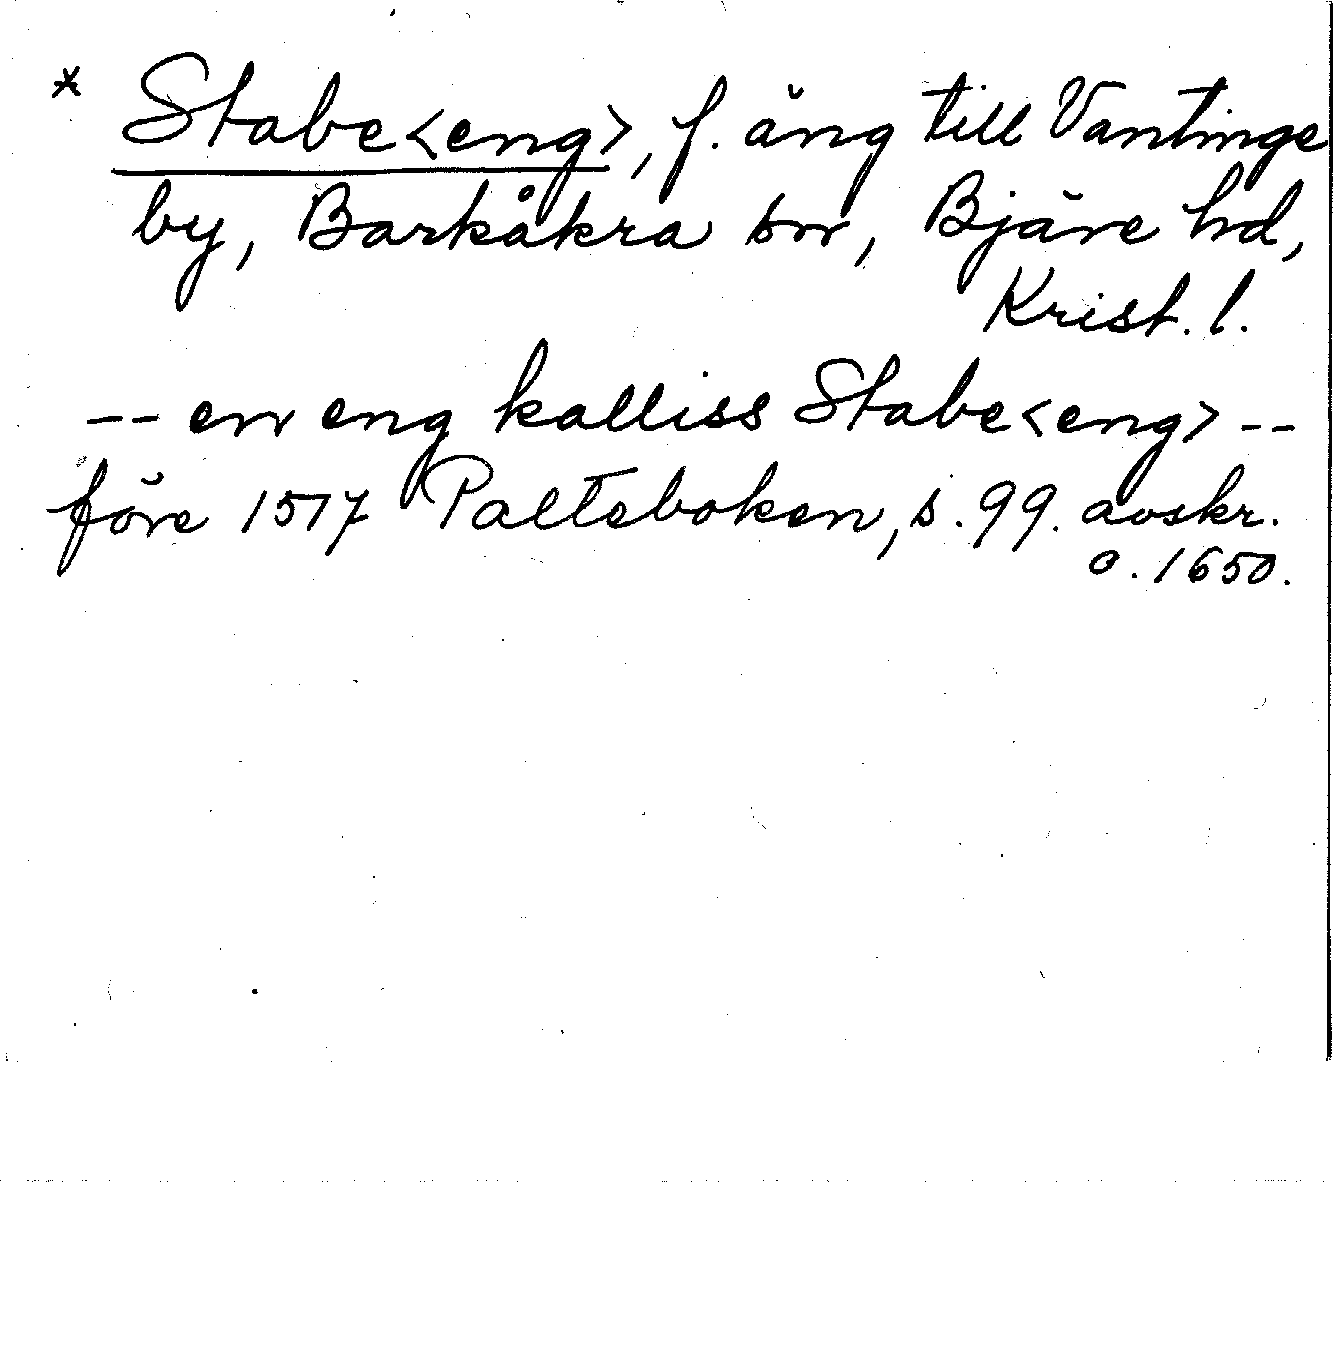 * Stabe<eng>, f. äng till Vantinge
by, Barkåkra sn, Bjäre hd,
Krist. l.
-- en eng kalliss Stabe<eng> --
före 1517 Palteboken, s. 99. avskr.
o. 1650.